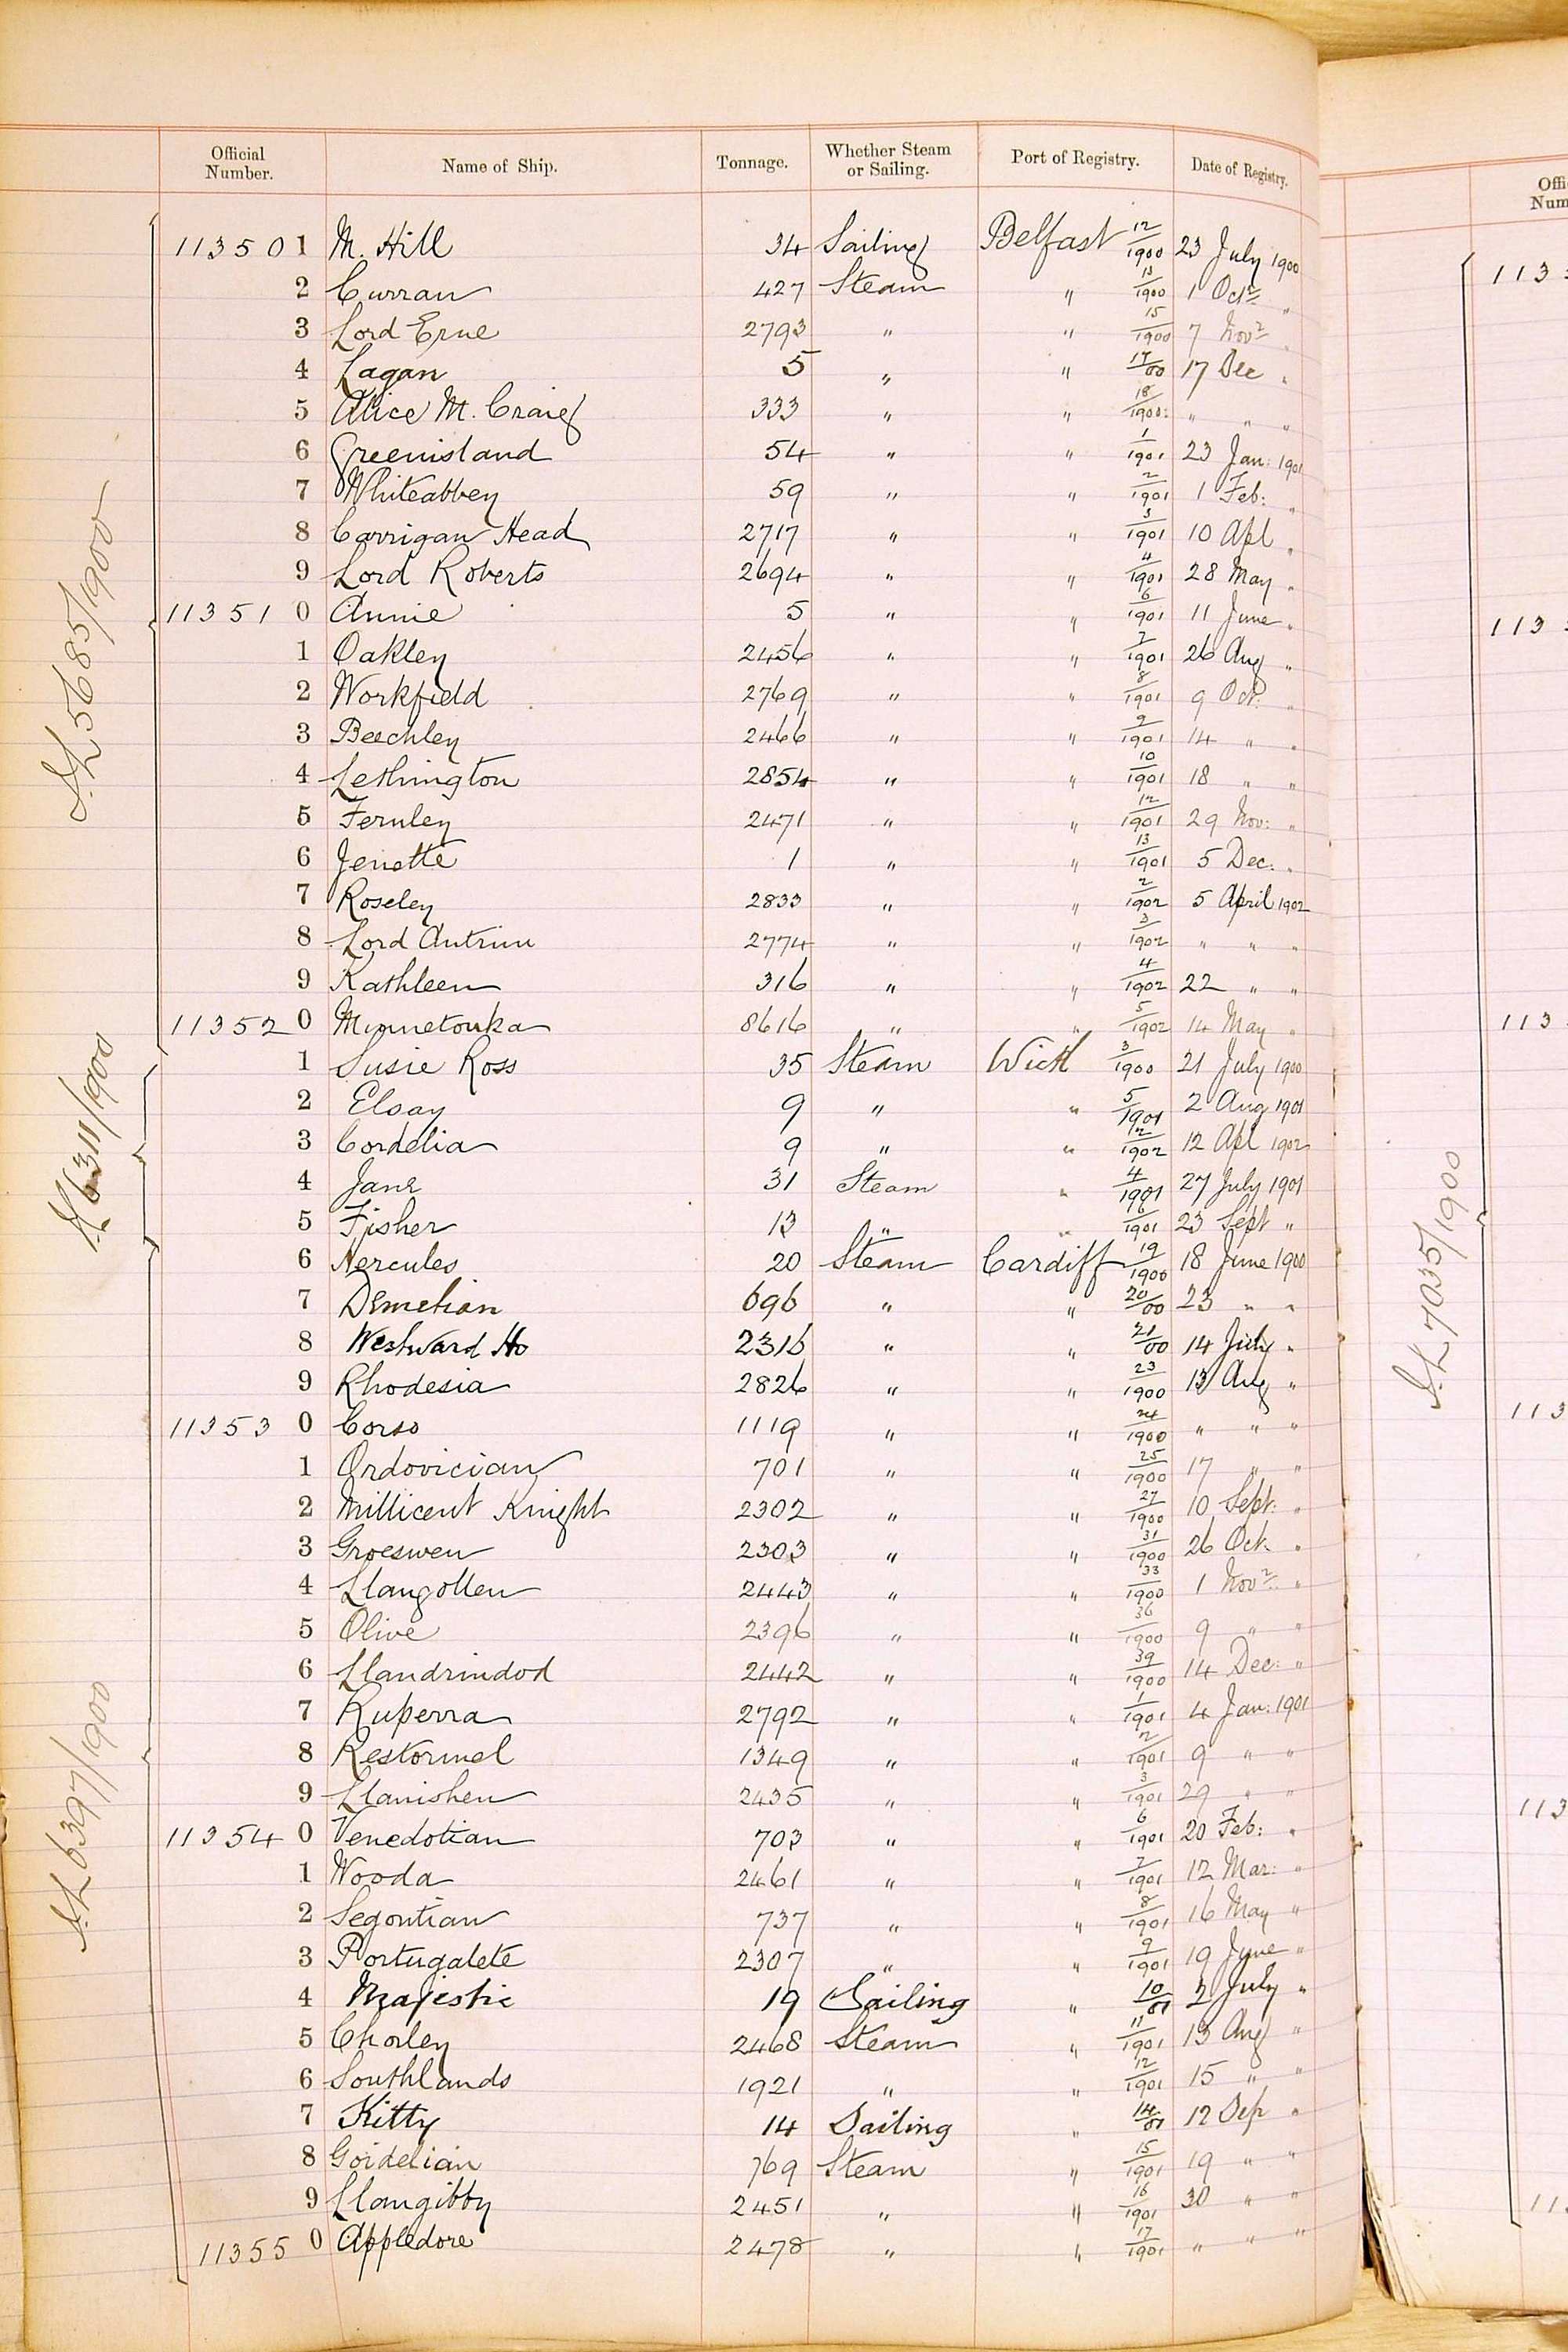 Official Number. Name of Ship. Tonnage. Whether Steam or Sailing. Port of Registry. Date of Registry.
113501 M. Hill 34 Sailing Belfast 12/1900 23 July 1900
2 Curran 427 Steam " 13/1900 1 Octr "
3 Lord Erne 2793 " " 15/1900 7 Novr "
4 Lagan 5 " " 17/00 17 Dec "
5 Alice M. Craig 333 " " 18/1900 " " "
6 Greenisland 54 " " 1/1901 23 Jan: 1901
7 Whiteabbey 59 " " 2/1901 1 Feb: "
8 Carrigan Head 2717 " " 3/1901 10 Apl "
9 Lord Roberts 2694 " " 4/1901 28 May "
113510 Annie 5 " " 6/1901 11 June "
1 Oakley 2456 " " 7/1901 26 Aug "
2 Workfield 2769 " " 8/1901 9 Oct: "
3 Beechley 2466 " " 9/1901 14 " "
4 Lethington 2854 " " 10/1901 18 " "
5 Fernley 2471 " " 12/1901 29 Nov: "
6 Jenette 1 " " 13/1901 5 Dec: "
7 Roseley 2833 " " 2/1902 5 April 1902
8 Lord Antrim 2774 " " 3/1902 " " "
9 Kathleen 316 " " 4/1902 22 " "
113520 Minnetonka 8616 " " 5/1902 14 May "
1 Susie Ross 35 Steam Wick 3/1900 21 July 1900
2 Elsay 9 " " 5/1901 2 Aug 1901
3 Cordelia 9 " " 12/1902 12 Apl 1902
4 Jane 31 Steam " 4/1901 27 July 1901
5 Fisher 13 " " 6/1901 23 Sept "
6 Hercules 20 Steam Cardiff 19/1900 18 June 1900
7 Demetian 696 " " 20/00 23 " "
8 Westward Ho 2316 " " 21/00 14 July "
9 Rhodesia 2826 " " 23/1900 13 Aug "
113530 Corso 1119 " " 24/1900 " " "
1 Ordovician 701 " " 25/1900 17 " "
2 Millicent Knight 2302 " " 27/1900 10 Sept: "
3 Groeswen 2303 " " 31/1900 26 Oct. "
4 Llangollen 2443 " " 33/1900 1 Novr "
5 Olive 2396 " " 36/1900 9 " "
6 Llandrindod 2442 " " 39/1900 14 Dec: "
7 Ruperra 2792 " " 1/1901 4 Jan: 1901
8 Restormel 1349 " " 2/1901 9 " "
9 Llanishen 2435 " " 3/1901 29 " "
113540 Venedotian 703 " " 6/1901 20 Feb: "
1 Wooda 2461 " " 7/1901 12 Mar: "
2 Segontian 737 " " 8/1901 16 May "
3 Portugalete 2307 " " 9/1901 19 June "
4 Majestic 19 Sailing " 10/01 2 July "
5 Chorley 2468 Steam " 11/1901 13 Aug "
6 Southlands 1921 " " 12/1901 15 " "
7 Kitty 14 Sailing " 14/01 12 Sep "
8 Goidelian 769 Steam " 15/1901 19 " "
9 Llangibby 2451 " " 16/1901 30 " "
113550 Appledore 2478 " " 17/1901 " " "
S.L 5685/1900
S.L 6311/1900
S.L 6397/1900
S.L 7035/1900
Offi
Num
113
113
113
113
113
11